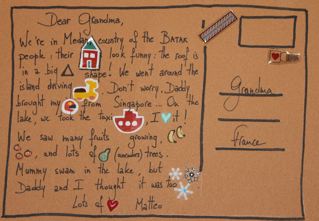 Dear Grandma,
We're in Medan, country of the BATAK
people; their look funny: the roof is
in a big shape. We went around the
island driving Don't worry, Daddy
brought my from Singapore... On the
lake, we took the taxi I it!
We saw many fruits growing,
and lots of trees.
Mummy swam in the lake, but
Daddy and I thought it was too
Lots of Matteo
Grandma
France